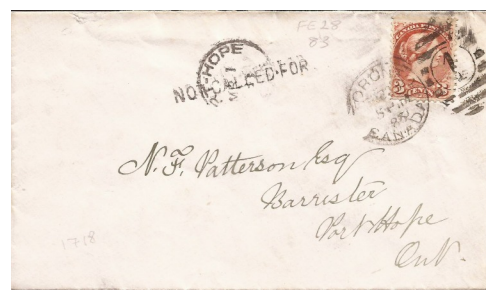 FE 28
83
PT-HOPE
NOT CALLED FOR
TORONTO
CANADA
N.F. Patterson Esq
Barrister
Port Hope
Ont.
1718